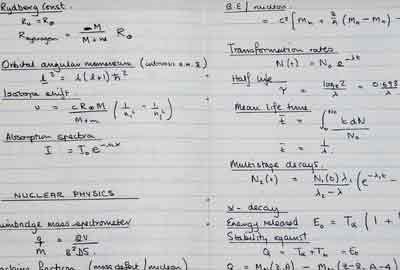 Rydberg Const.
R∞ = R∞
R hydrogen = M / M+m R∞
Orbital angular momentum (intrinsic a.m. S)
l² = l(l+1)ħ²
Isotope shift.
υ = cR∞M / M+m (1/n² - 1/n²)
Absorption spectra
I = I₀e
NUCLEAR PHYSICS
mass spectrometer
q/M = 2V / B²DS
fraction (mass defect / nucleon)
B.E / nucleon
= c² [Mn + (Mn - MH) -
Transformation rates
N(t) = N₀ e^-λt
Half life
τ = loge2 / λ = 0.693
Mean life time
t̄ = ∫ t dN / N₀
t̄ = 1/λ
Multistage decays.
N₂(t) = N₁(0)λ₁ / λ₂ - λ (e^-λ₁t -
α - decay
Energy released E₀ = Tα (1 +
Stability against
Q = Tα + Tb = E₀
Q = (Z,A) - (Z-2, A-4)